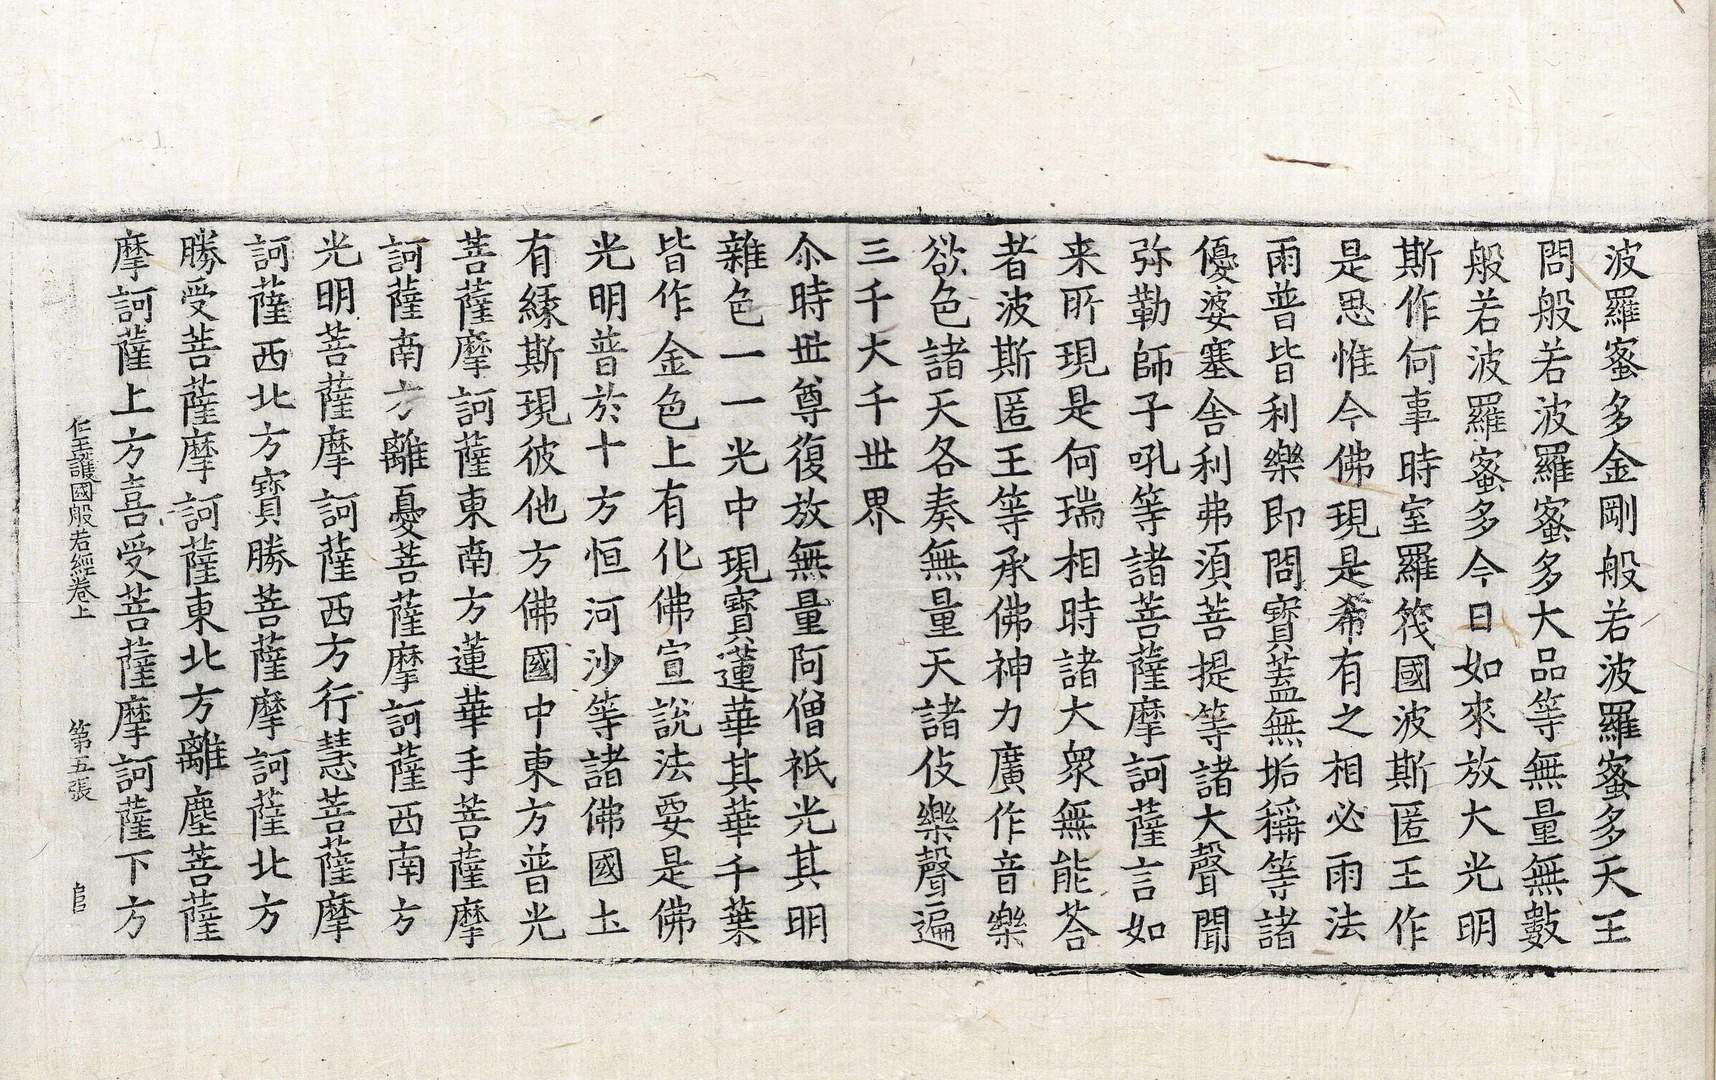 波羅蜜多金剛般若波羅蜜多天王
問般若波羅蜜多大品等無量無數
般若波羅蜜多今日如來放大光明
斯作何事時室羅筏國波斯匿王作
是思惟今佛現是希有之相必雨法
雨普皆利樂即問寶蓋無垢稱等諸
優婆塞舍利弗須菩提等諸大聲聞
弥勒師子吼等諸菩薩摩訶薩言如
来所現是何瑞相時諸大衆無能荅
者波斯匿王等承佛神力廣作音樂
欲色諸天各奏無量天諸伎樂聲遍
三千大千世界
尒時世尊復放無量阿僧祇光其明
雜色一一光中現寶蓮華其華千葉
皆作金色上有化佛宣說法要是佛
光明普於十方恒河沙等諸佛國土
有緣斯現彼他方佛國中東方普光
菩薩摩訶薩東南方蓮華手菩薩摩
訶薩南方離憂菩薩摩訶薩西南方
光明菩薩摩訶薩西方行慧菩薩摩
訶薩西北方寶勝菩薩摩訶薩北方
勝受菩薩摩訶薩東北方離塵菩薩
摩訶薩上方喜受菩薩摩訶薩下方
仁王護國般若經卷上 第五張